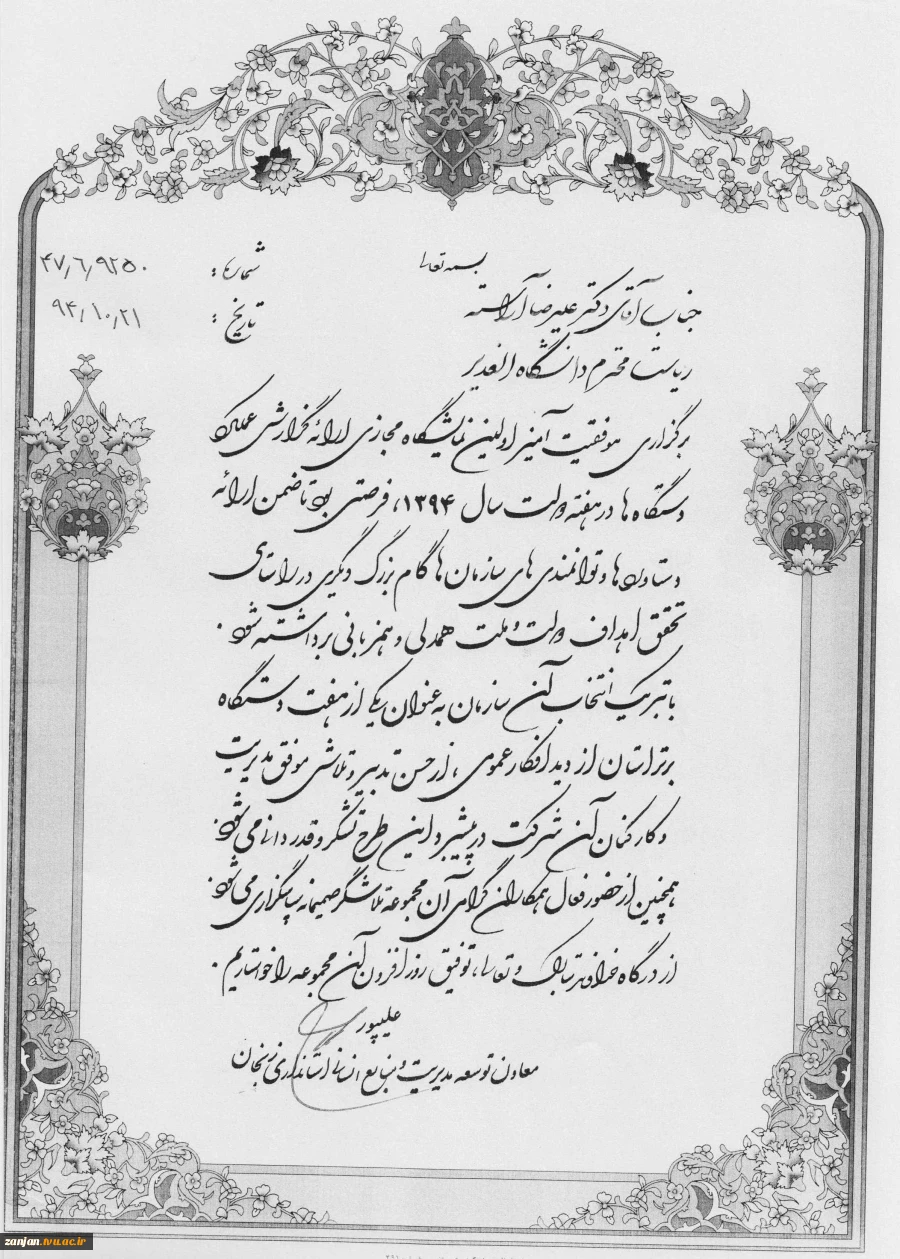 بسمه تعالی
شماره: ۴۷/۶/۹۲۵۰
تاریخ: ۹۴/۱۰/۲۱
جناب آقای دکتر علیرضا آراسته
ریاست محترم دانشگاه الغدیر
برگزاری موفقیت آمیز اولین نمایشگاه مجازی ارائه گزارش عملکرد
دستگاه ها در هفته دولت سال ۱۳۹۴، فرصتی بود تا ضمن ارائه
دستاوردها و توانمندی های سازمان ها گام بزرگ دیگری در راستای
تحقق اهداف دولت و ملت همدلی و همزبانی برداشته شود.
با تبریک انتخاب آن سازمان به عنوان یکی از هفت دستگاه
برتر استان از دید افکار عمومی، از حسن تدبیر و تلاش موفق مدیریت
و کارکنان آن شرکت در پیشبرد این طرح تشکر و قدردانی می شود.
همچنین از حضور فعال همکاران گرامی آن مجموعه تلاشگر صمیمانه سپاسگزاری می شود.
از درگاه خداوند تبارک و تعالی، توفیق روز افزون آن مجموعه را خواستاریم.
علیپور
معاون توسعه مدیریت و منابع انسانی استانداری زنجان
zanjan.tvu.ac.ir